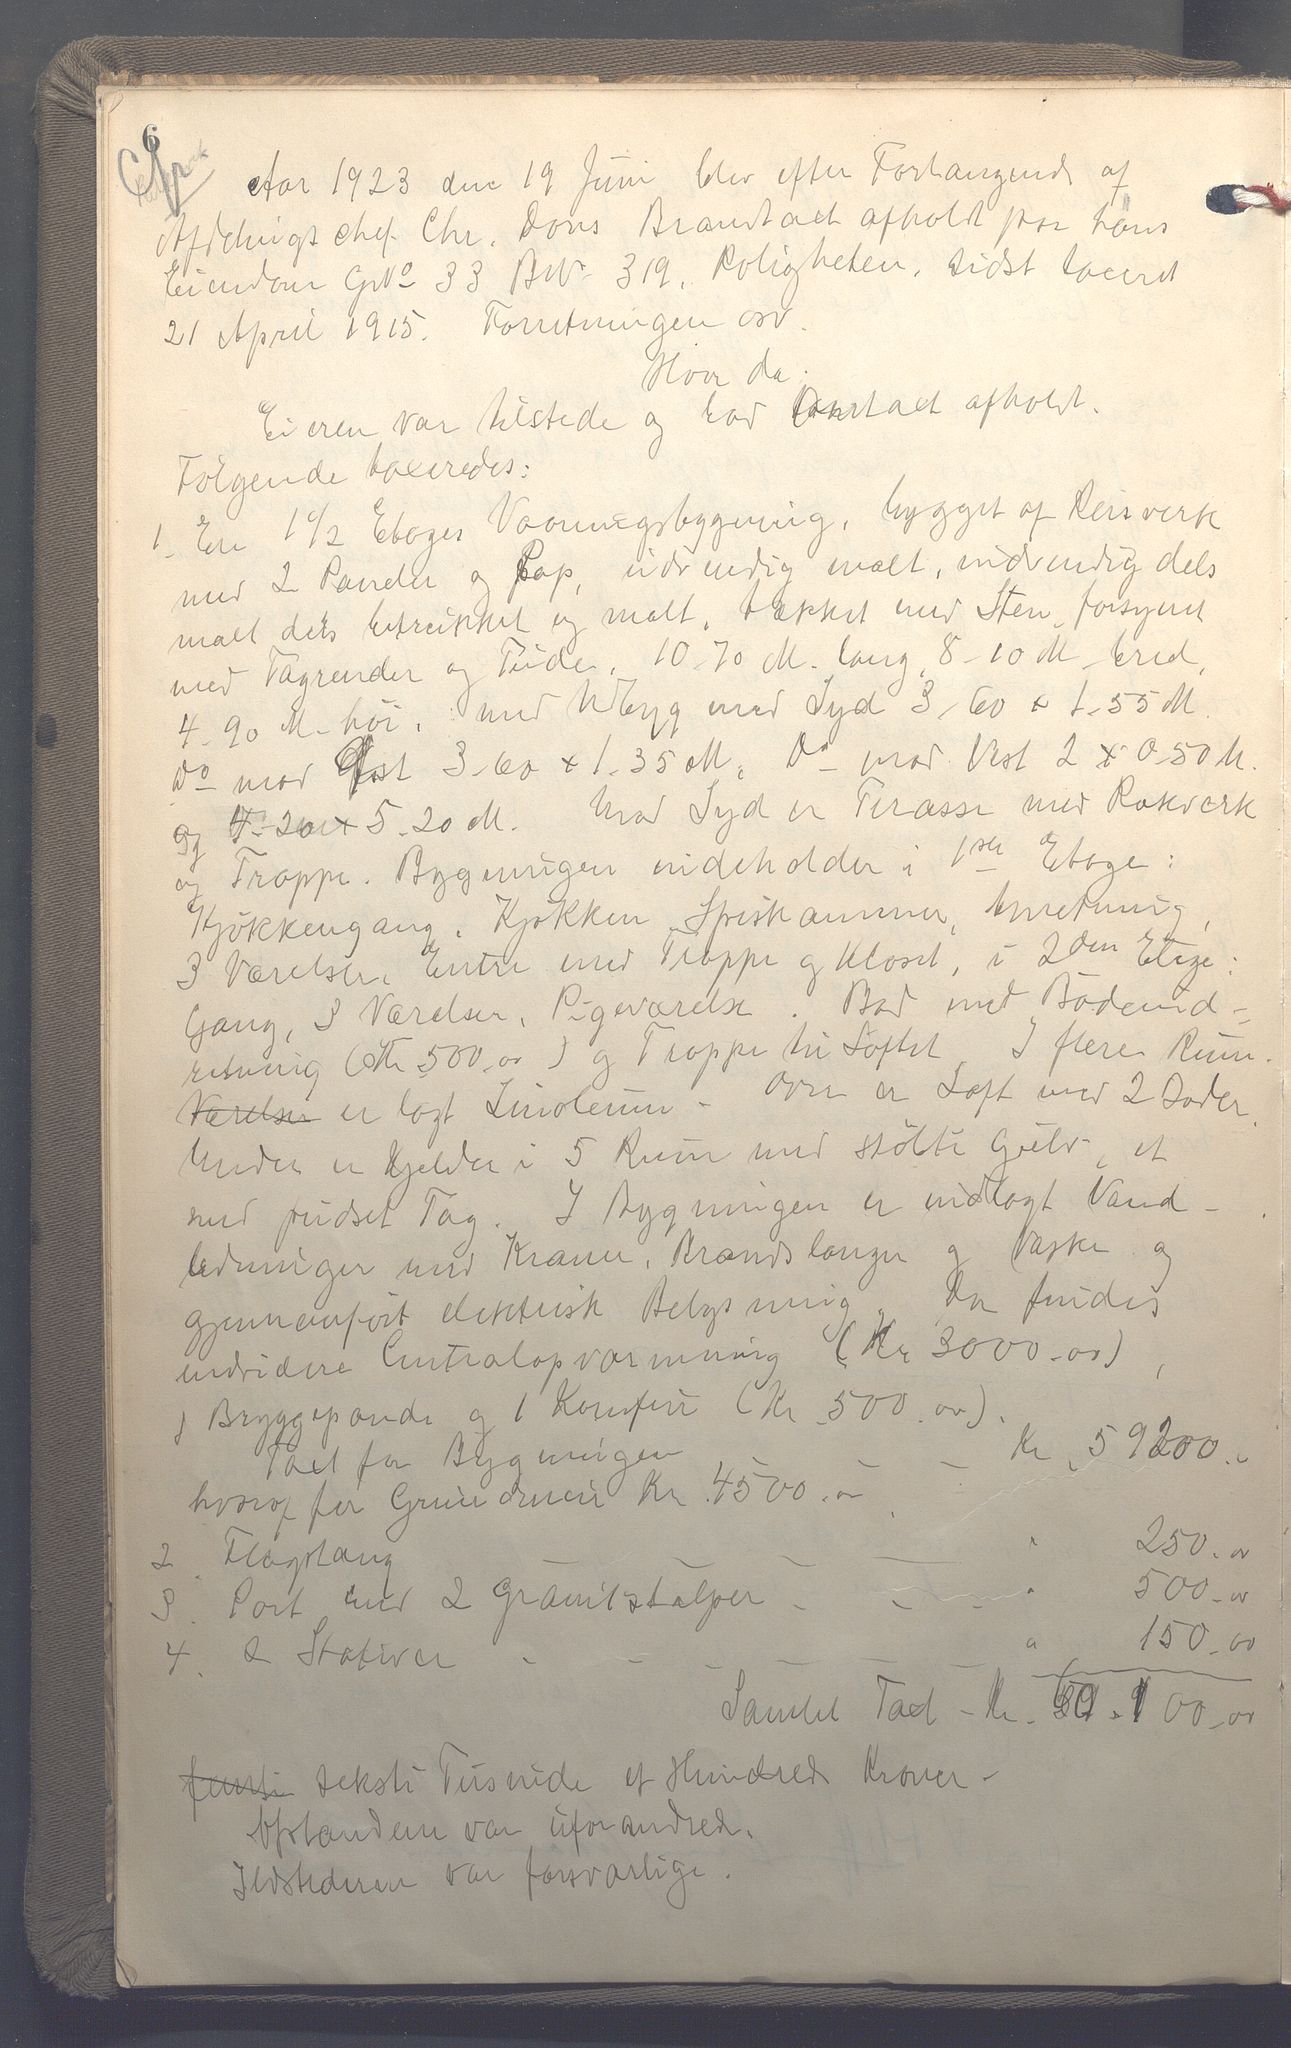 6
Aar 1923 den 19 Juni blev efter Forlangende af
Afdelingschef Chr. Dons Brandtaxt afholdt paa hans
Eiendom GNo 33 BNo 319, Roligheten, sidst taxeret
21 April 1915. Forretningen osv.
Hvor da:
Eieren var tilstede og bad taxt afholdt.
Følgende taxeredes:
1. En 1 1/2 Etages Vaaningsbygning, bygget af Reisverk
med 2 Paneler og Pap, udvendig malt, indvendig dels
malt dels betrukket og malt, tækket med Sten, forsynet
med Tagrender og Nedløb, 10-70 M. lang, 8-10 M. bred,
4-90 M. høi, med Udbyg mod Syd 3-60 x 1-55 M.
Do mod Øst 3-60 x 1-35 M, Do mod Vest 2 x 0-50 M.
og 4-20 x 5-20 M. Mod Syd er Terasse med Rækværk
og Trappe. Bygningen indeholder i 1ste Etage:
Kjøkkengang, Kjøkken, Spiskammer, Anretning,
3 Værelser, Entre med Trappe og Kloset, i 2den Etage:
Gang, 3 Værelser, Pigeværelse, Bad med Badeind-
retning (Kr 500.00) og Trappe til Loftet. I flere Rum
Værelser er lagt Linoleum - Over er Loft med 2 Boder.
Under er Kjelder i 5 Rum med støbte Gulv, et
med pudset Tag. I Bygningen er indlagt Vand-
ledninger med Kraner, Brandslanger og Vaske og
gjennemført elektrisk Belysning. Der findes
endvidere Centralopvarmning (Kr 3000.00),
1 Bryggepande og 1 Komfur (Kr 500.00).
Taxt for Bygningen Kr. 59200.-
hvoraf for Grundmur Kr. 4500.00
2. Flagstang " 250.00
3. Port med 2 Granitstolper " 500.00
4. 2 Stativer " 150.00
Samlet Taxt - Kr. 60.100.00
femti seksti Tusinde et Hundrede Kroner -
Afstandene var uforandrede.
Ildstederne var forsvarlige.